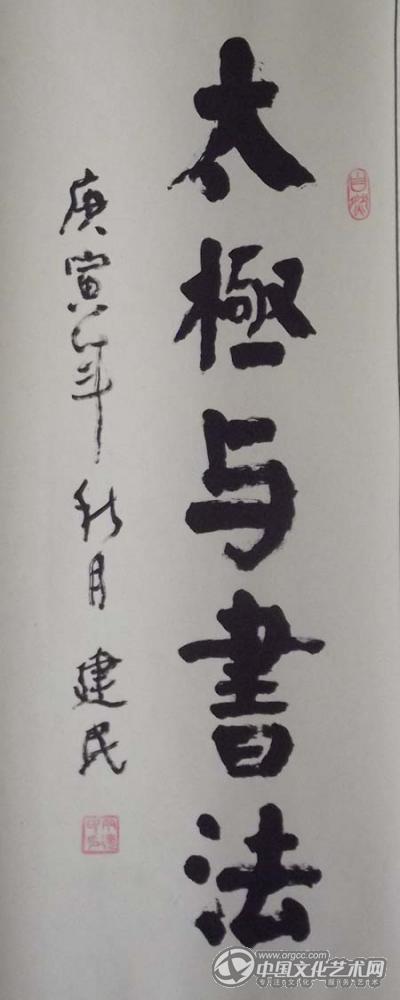 太極与書法
庚寅年秋月 建民
www.orgcc.com
中国文化艺术网